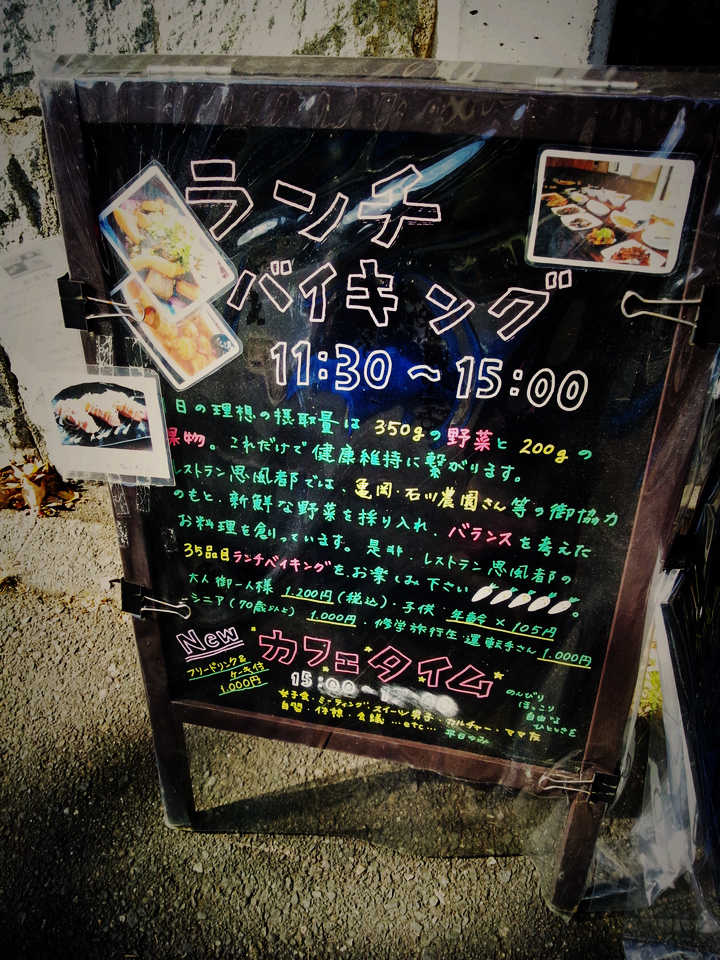 ランチ
バイキング
11:30～15:00
日の理想の摂取量は 350gの野菜と 200gの
果物。これだけで健康維持に繋がります。
レストラン思風都では、亀岡・石川農園さん等の御協力
のもと、新鮮な野菜を採り入れ、バランスを考えた
お料理を創っています。是非、レストラン思風都の
35品目ランチバイキングを、お楽しみ下さい。
大人 御一人様 1,200円(税込)・子供・年齢×105円
シニア(70歳以上) 1,000円・修学旅行生・運転手さん 1,000円
New カフェタイム
フリードリンク&
ケーキ付
1,000円
15:00～
のんびり
ほっこり
自由な
ひとときを
女子会・ミーティング・スイーツ男子・カルチャー・ママ友
自習・仔猫・会議 …etc… 平日のみ